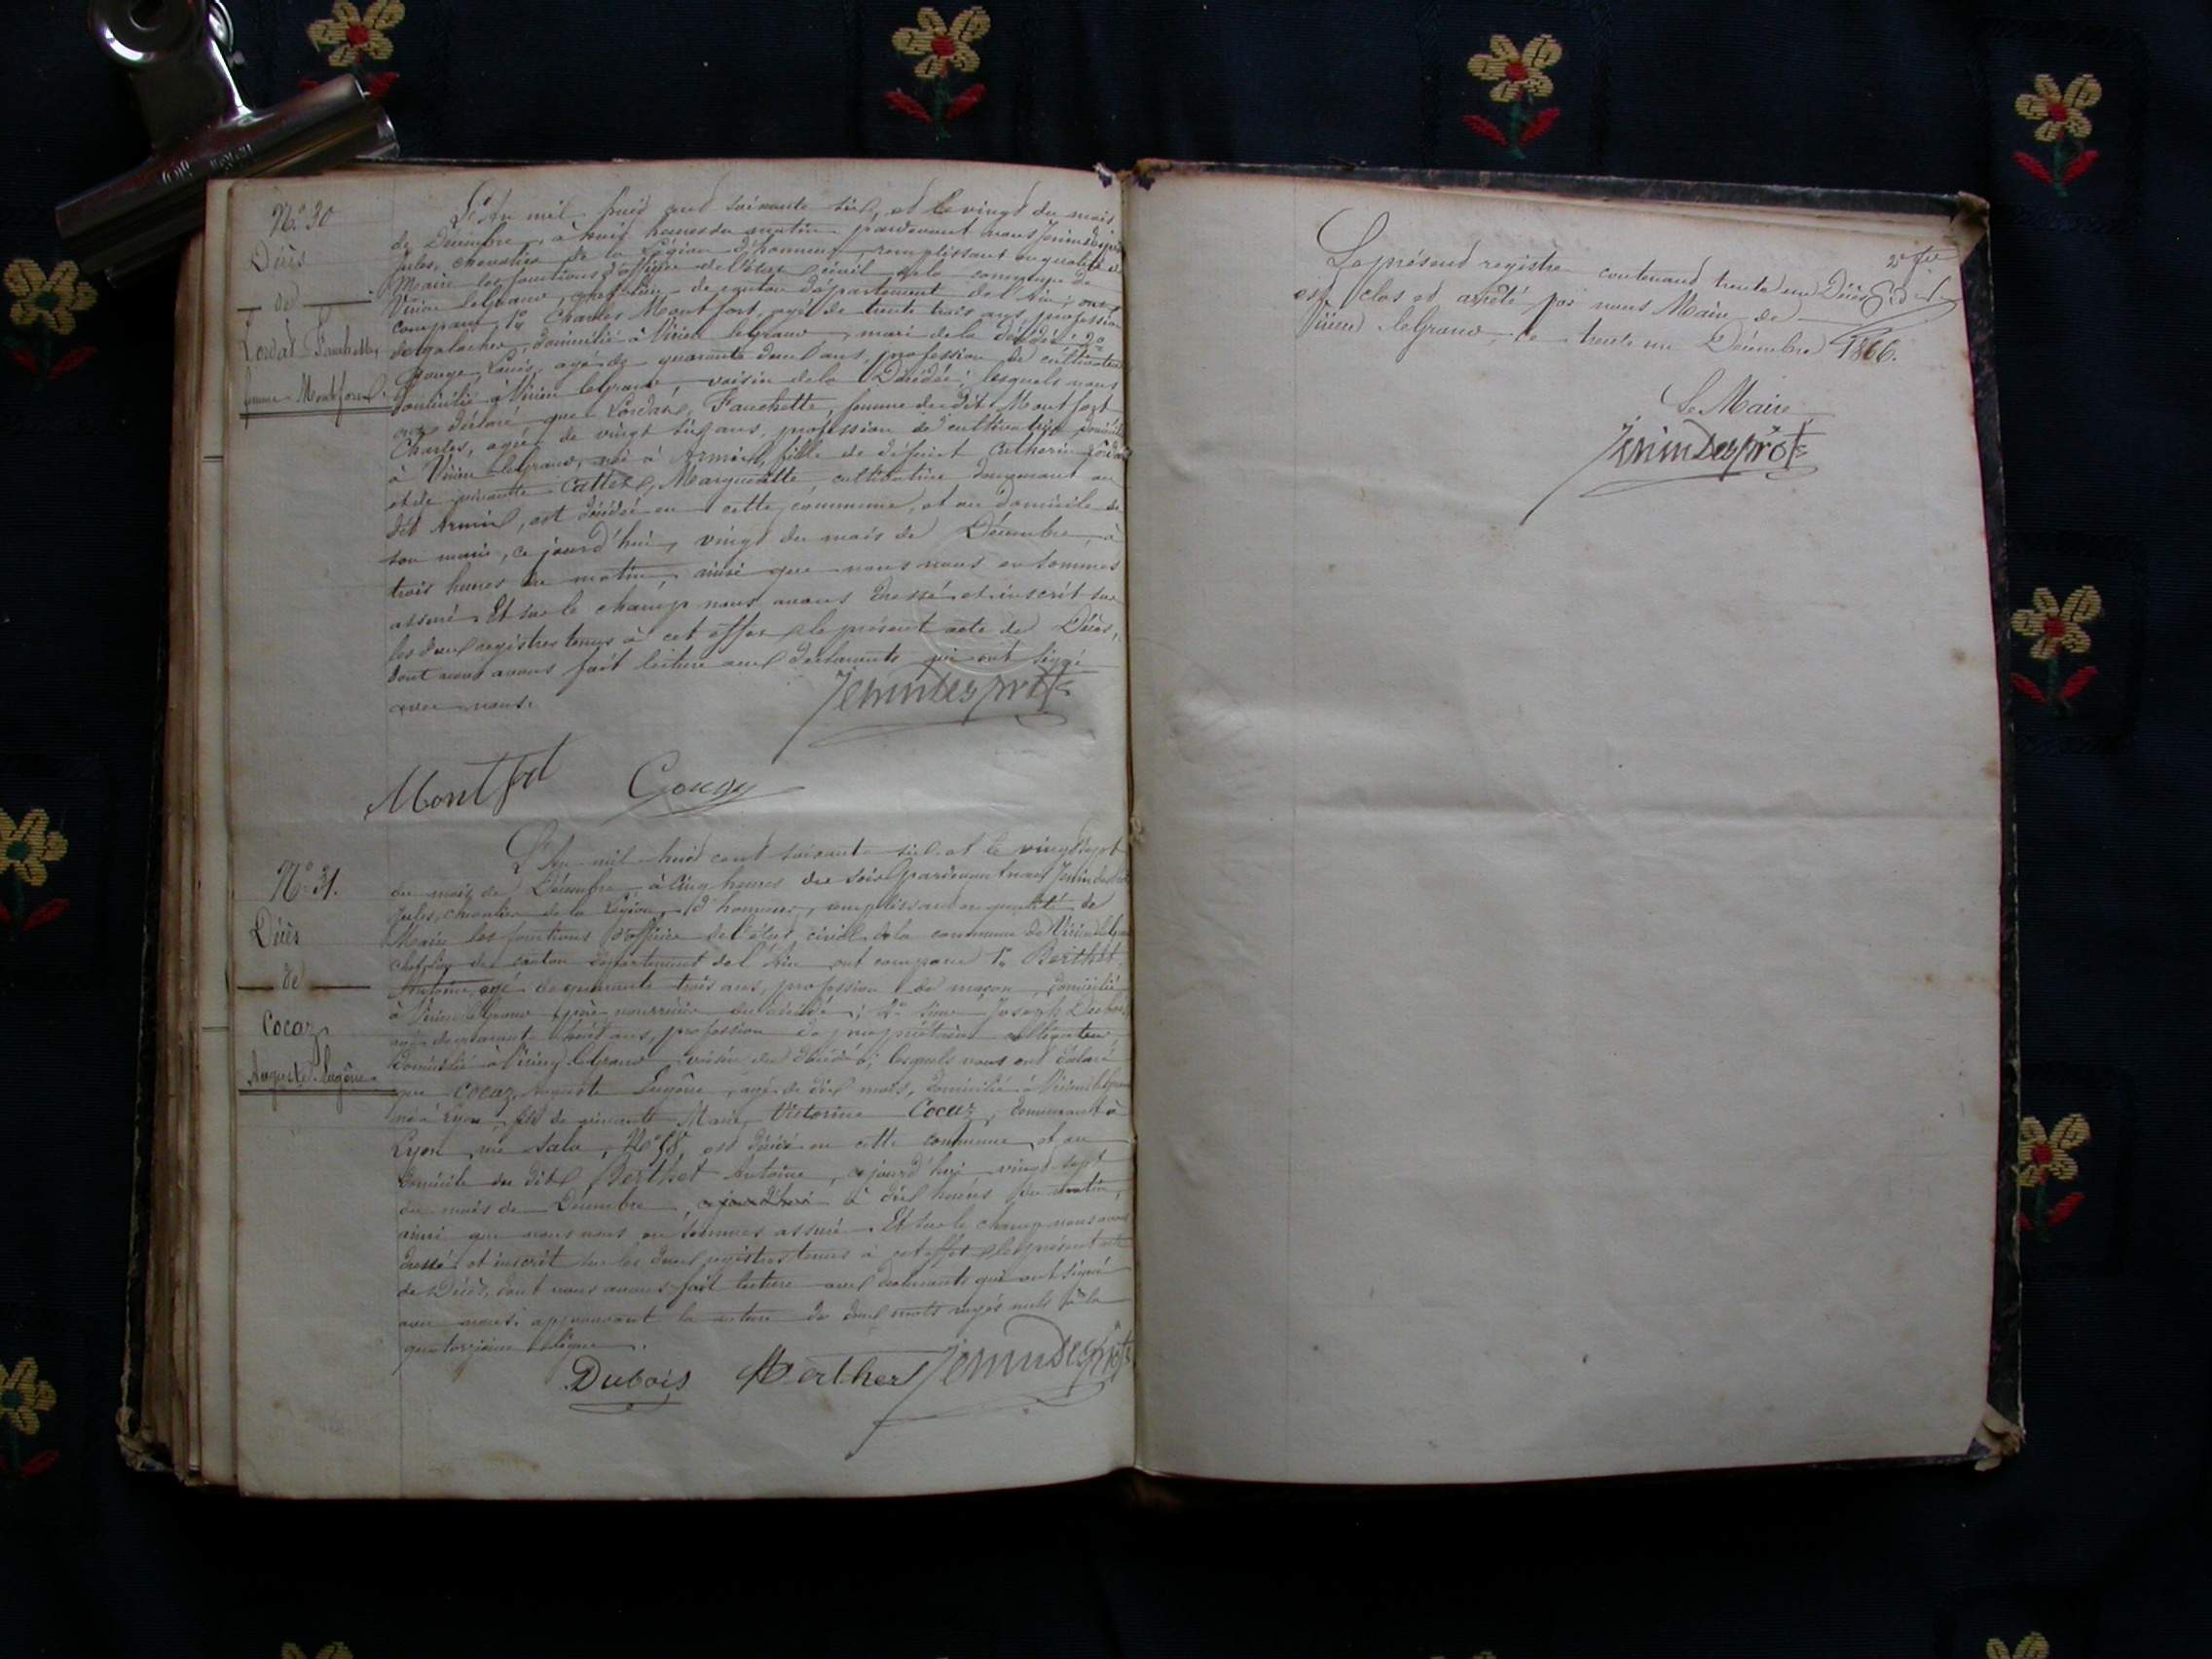 N° 30
Décès
de
Lordat Fanchette
femme Montfort
L'An mil huit cent soixante six, et le vingt du mois
de Décembre, à huit heures du matin, pardevant nous Jenin
Jules, chevalier de la Légion d'honneur, remplissant en qualité de
Maire les fonctions d'officier de l'état civil de la commune de
Virieu legrand, chef lieu de canton département de l'Ain, ont
comparu 1° Charles Montfort, agé de trente trois ans, profession
de galocher, domicilié à Virieu legrand, mari de la décédée; 2°
Louis, agé de quarante deux ans, profession de cultivateur
domicilié à Virieu legrand, voisin de la Décédée; lesquels nous
ont déclaré que Fanchette, femme du dit Montfort
Charles, agée de vingt six ans, profession de cultivatrice domiciliée
à Virieu legrand, née à Armix, fille de défunt
et de vivante Marguerite cultivatrice demeurant au
dit Armix, est décédée en cette commune, et au domicile de
son mari, ce jourd'hui, vingt du mois de Décembre, à
trois heures du matin, ainsi que nous nous en sommes
assuré. Et sur le champ nous avons dressé et inscrit sur
les deux registres tenus à cet effet le présent acte de Décès,
dont nous avons fait lecture aux déclarants qui ont signé
avec nous.
Jenin Desprôts
Montfort Gougy
N° 31.
Décès
de
Cocaz
Auguste Eugène
L'An mil huit cent soixante six et le vingt sept
du mois de Décembre, à cinq heures du soir pardevant nous Jenin
Jules, chevalier de la Légion d'honneur, remplissant en qualité de
Maire les fonctions d'officier de l'état civil de la commune de Virieu legrand
chef lieu de canton département de l'Ain ont comparu 1° Berthet
Antoine, agé de quarante trois ans, profession de maçon, domicilié
à Virieu legrand, père nourricier du décédé; 2° Joseph Dubois
agé de quarante huit ans, profession de propriétaire
domicilié à Virieu legrand voisin du décédé; lesquels nous ont déclaré
que Cocaz Auguste Eugène, agé de dix mois, domicilié à Virieu legrand
né à Lyon fils de vivante Marie Victorine Cocaz, demeurant à
Lyon rue Sala, N° 58, est décédé en cette commune et au
domicile du dit Berthet Antoine, ce jourd'hui vingt sept
du mois de Décembre, ce jourd'hui à dix heures du matin,
ainsi que nous nous en sommes assuré. Et sur le champ nous avons
dressé et inscrit sur les deux registres tenus à cet effet le présent acte
de Décès, dont nous avons fait lecture aux déclarants qui ont signé
avec nous. approuvant la rature de deux mots rayés nuls à la
quatorzième ligne.
Dubois Berthet Jenin Desprôts
Le présent registre contenant trente un Décès
est clos et arrêté par nous Maire de
Virieu legrand, le trente un Décembre 1866.
Le Maire
Jenin Desprôts